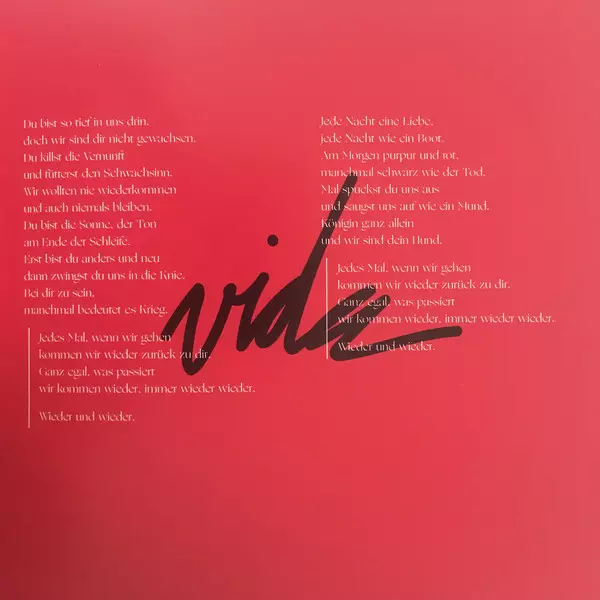 Du bist so tief in uns drin,
doch wir sind dir nicht gewachsen.
Du killst die Vernunft
und fütterst den Schwachsinn.
Wir wollten nie wiederkommen
und auch niemals bleiben.
Du bist die Sonne, der Ton
am Ende der Schleife.
Erst bist du anders und neu
dann zwingst du uns in die Knie.
Bei dir zu sein,
manchmal bedeutet es Krieg.
Jedes Mal, wenn wir gehen
kommen wir wieder zurück zu dir.
Ganz egal, was passiert
wir kommen wieder, immer wieder wieder.
Wieder und wieder.
Jede Nacht eine Liebe,
jede Nacht wie ein Boot.
Am Morgen purpur und rot,
manchmal schwarz wie der Tod.
Mal spuckst du uns aus
und saugst uns auf wie ein Mund.
Königin ganz allein
und wir sind dein Hund.
Jedes Mal, wenn wir gehen
kommen wir wieder zurück zu dir.
Ganz egal, was passiert
wir kommen wieder, immer wieder wieder.
Wieder und wieder.
vida